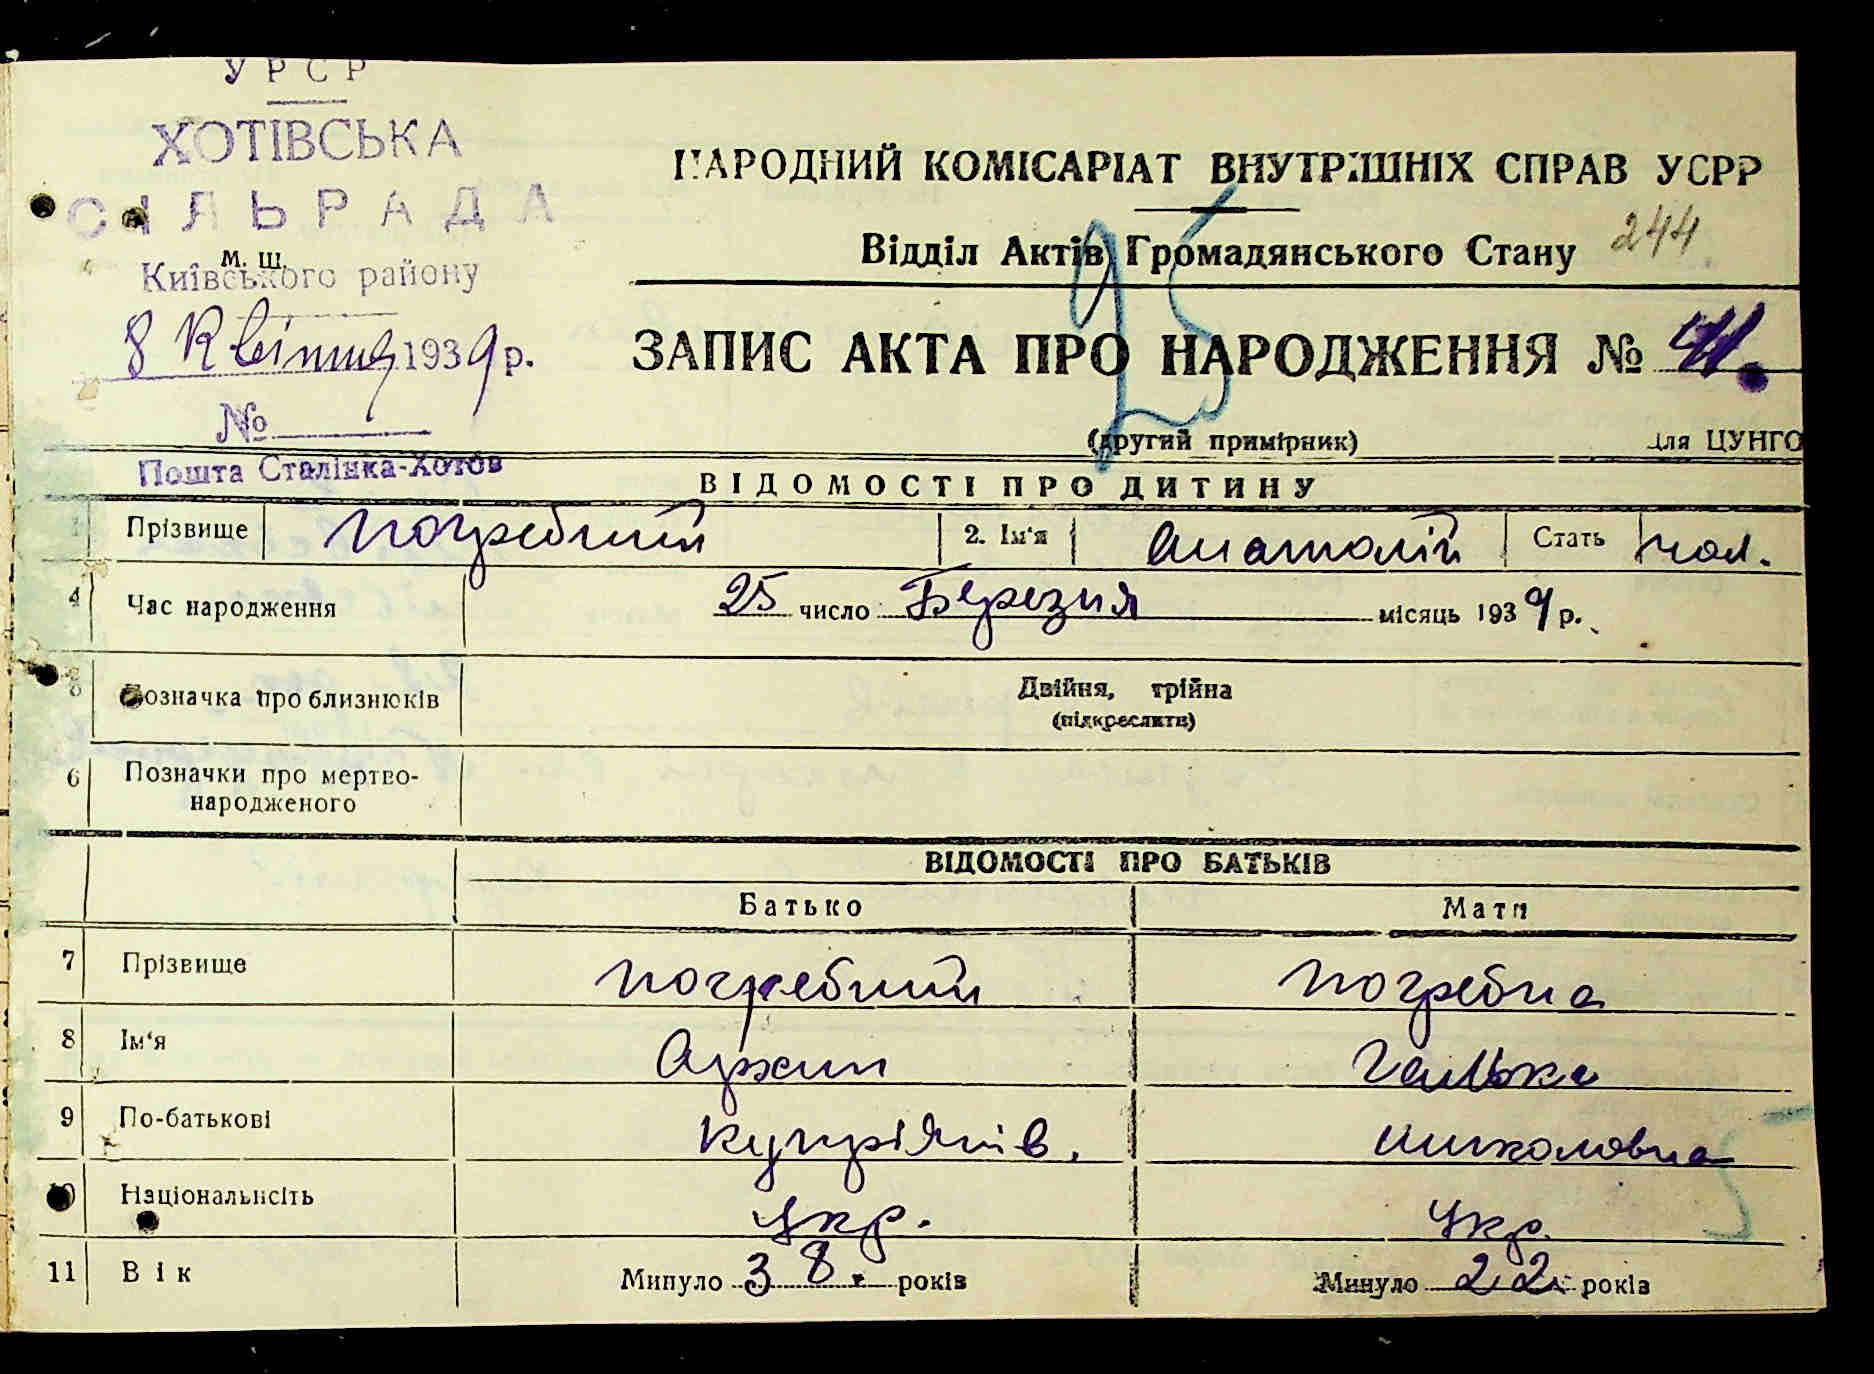 УРСР
ХОТІВСЬКА
СІЛЬРАДА
М. Ш.
Київського району
8 Квітня 1939 р.
№
Пошта Сталінка-Хотов
НАРОДНИЙ КОМІСАРІАТ ВНУТРІШНІХ СПРАВ УСРР
Відділ Актів Громадянського Стану 244
95
ЗАПИС АКТА ПРО НАРОДЖЕННЯ № 41.
(другий примірник) для ЦУНГО
ВІДОМОСТІ ПРО ДИТИНУ
1 Прізвище Погребний 2. Ім'я Анатолій Стать чол.
4 Час народження 25 число Березня місяць 1939 р.
5 Позначка про близнюків Двійня, трійна
(підкреслити)
6 Позначки про мертво-
народженого
ВІДОМОСТІ ПРО БАТЬКІВ
Батько Мати
7 Прізвище Погребний Погребна
8 Ім'я Галька
9 По-батькові Купріянів. Миколовна
10 Національність Укр. Укр.
11 Вік Минуло 38. років Минуло 22 років